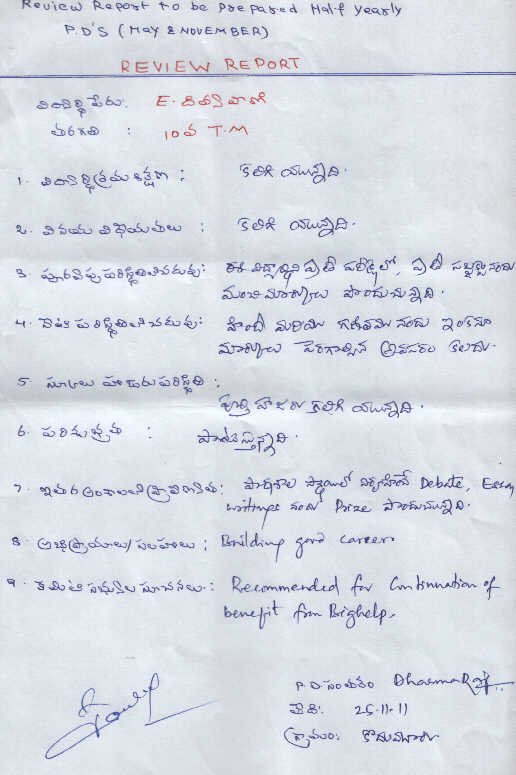 Review Report to be prepared Half yearly
P.D'S (MAY & NOVEMBER)
REVIEW REPORT
విద్యార్థి పేరు: E.
తరగతి : 10వ T.M
1. క్రమశిక్షణ : కలిగి యున్నది.
2. వినయ విధేయతలు : కలిగి యున్నది.
3. ఈ విద్యార్థిని ప్రతి పరీక్షలో, ప్రతి సబ్జెక్టునందు
మంచి మార్కులు పొందుచున్నది.
4. హిందీ మరియు గణితము నందు ఇంకనూ
మార్కులు పెరగాల్సిన అవసరం కలదు.
5. హాజరు పరిస్థితి :
పూర్తి హాజరు కలిగి యున్నది.
6. పరిశుభ్రత : పాటిస్తున్నది.
7. ఇతర పాఠశాల స్థాయిలో నిర్వహించే Debate, Essay
writings నందు Prize పొందుచున్నది.
8. అభిప్రాయాలు/సలహాలు : Building good career
9. కమిటీ సభ్యుల సూచనలు : Recommended for Continuation of
benefit from Bighelp.
P.D సంతకం DharmaRaj
తేది: 25-11-11
గ్రామం: